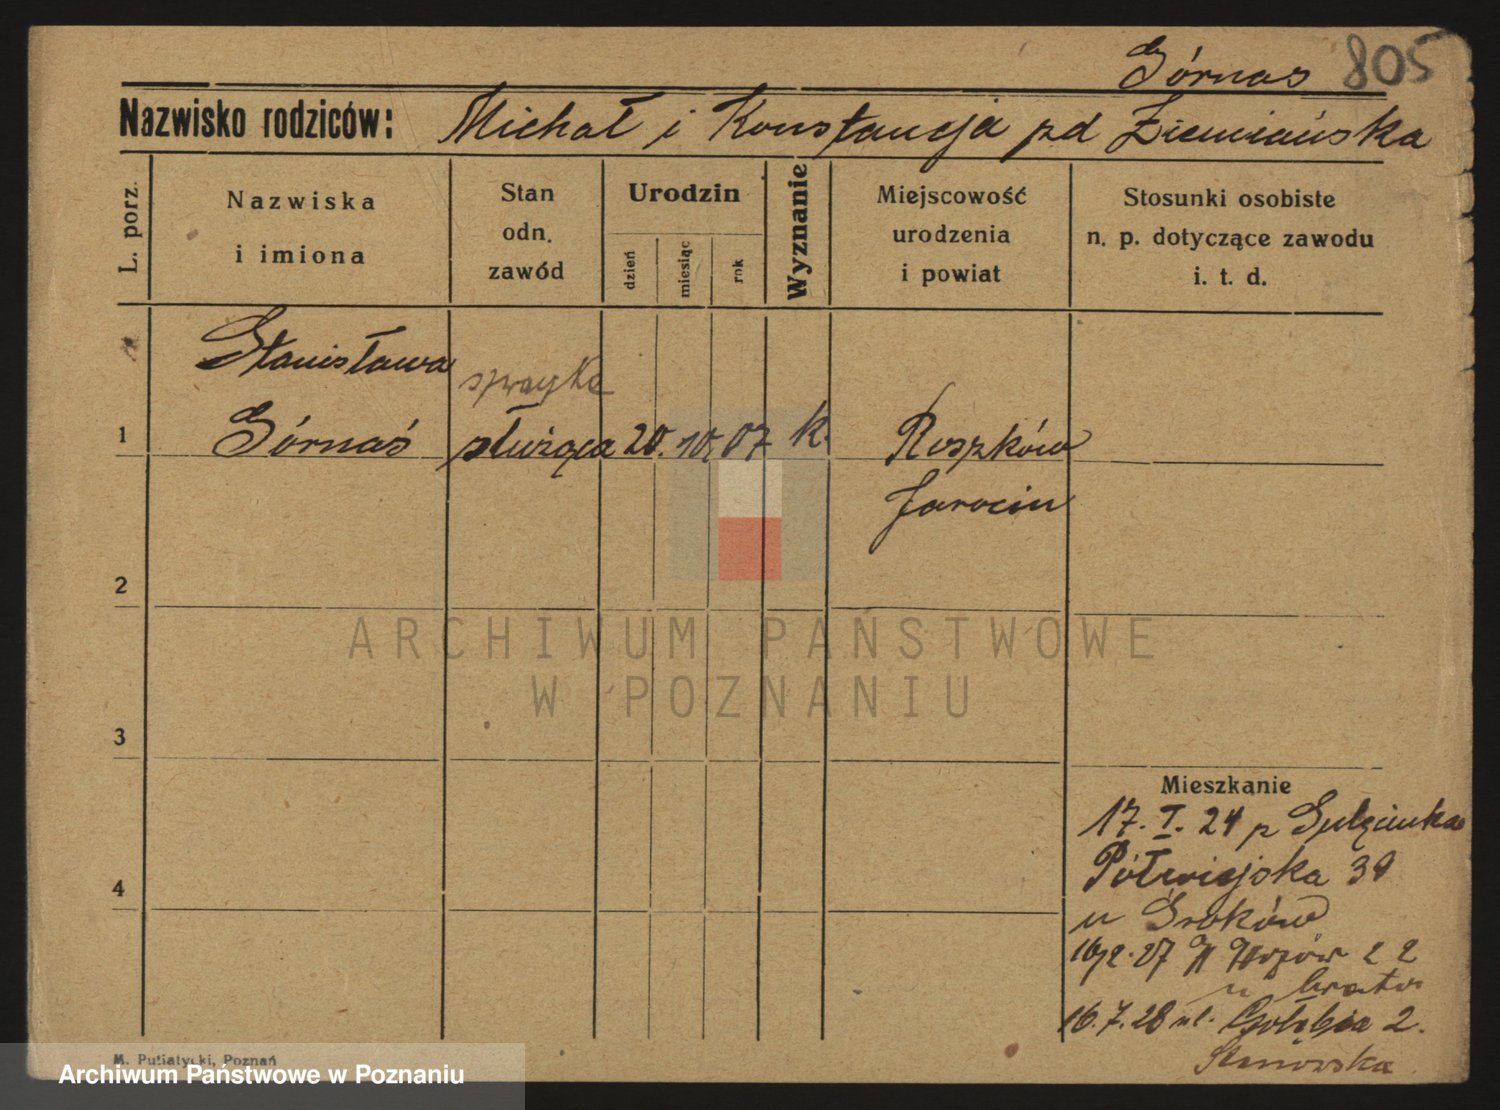 Górnas 805
Nazwisko rodziców: Michał i Konstancja pd Ziemiańska
L. porz.
Nazwiska
i imiona
Stan
odn.
zawód
Urodzin
dzień
miesiąc
rok
Wyznanie
Miejscowość
urodzenia
i powiat
Stosunki osobiste
n. p. dotyczące zawodu
i. t. d.
Stanisława
1 Górnaś służąca 20. 10. 07 k. Roszków
Jarocin
2
ARCHIWUM PAŃSTWOWE
W POZNANIU
3
Mieszkanie
17. I. 24 p
4 Półwiejska 39
u
27 22
u brata
16.7.28 ul. Gołębia 2.
M. Putiatycki, Poznań
Archiwum Państwowe w Poznaniu